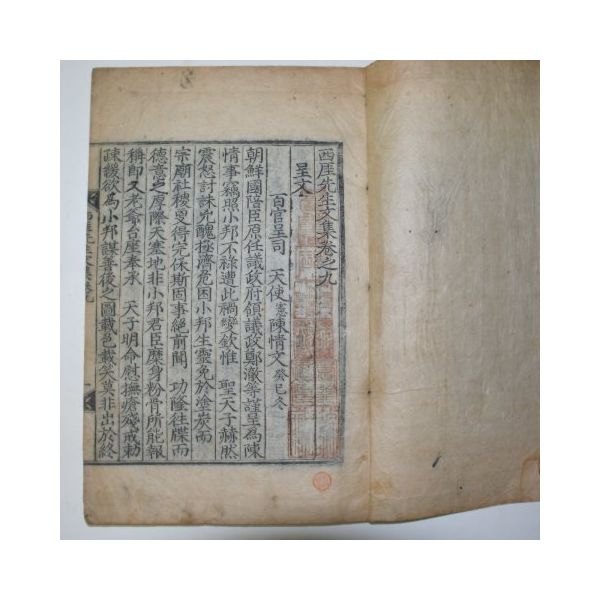 西厓先生文集卷之九
呈文
百官呈司 天使憲陳情文癸巳冬
朝鮮國陪臣原任議政府領議政鄭澈等謹呈爲陳
情事竊照小邦不祿遭此禍變欽惟 聖天子赫然
震怒討誅兇醜拯濟危困小邦生靈免於塗炭而
宗廟社稷更得完保斯固事絕前聞 功隆往牒而
德意之原際天塞地非小邦君臣糜身粉骨所能報
稱即又老爺台座奉承 天子明命慰撫瘡殘戒勅
疎援欲爲小邦謀善後之圖載色載笑莫非出於終
西厓先生文集卷九